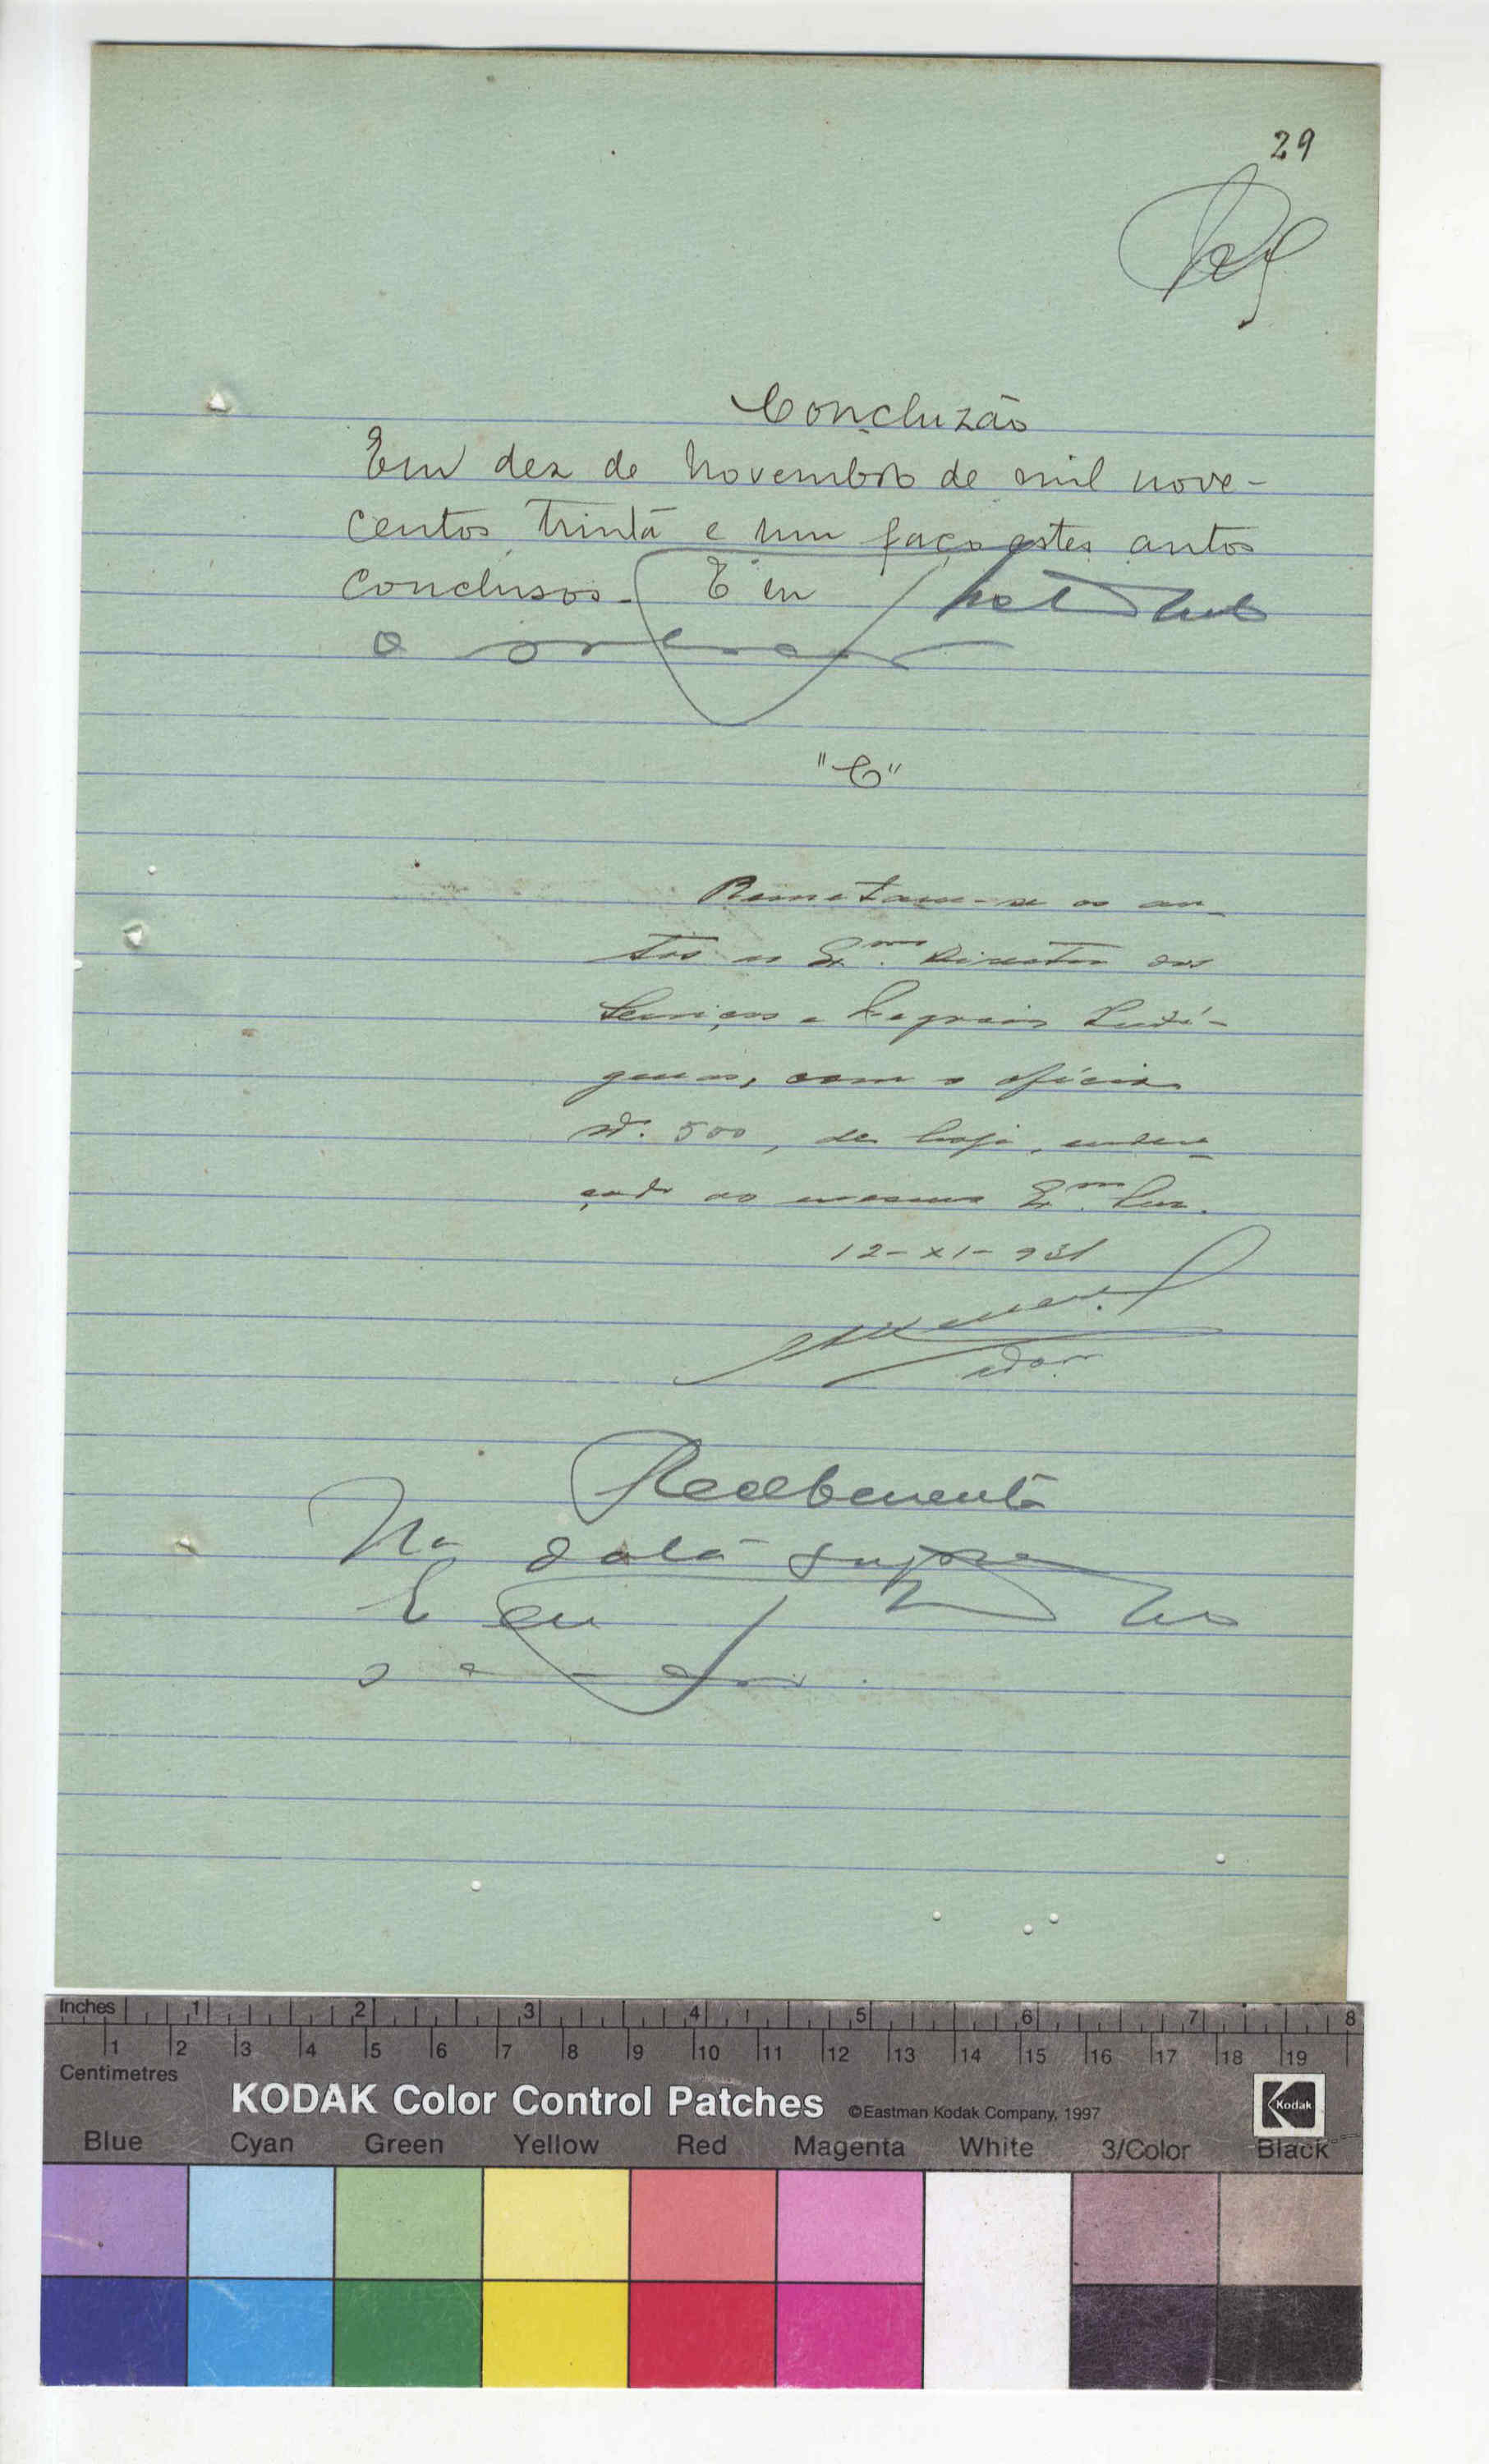 29
Concluzão
Em dez de Novembro de mil nove-
centos trinta e um faço estes autos
conclusos. E eu
o
"C"
Remetam-se os au-
tos ao Exmo. Director dos
Serviços e Negocios Indí-
genas, com o ofício
nº. 500, de hoje, endere-
çado ao mesmo Exmo. Snr.
12-XI-931
Recebimento
Na data supra
E eu
Inches 1 2 3 4 5 6 7 8
1 2 3 4 5 6 7 8 9 10 11 12 13 14 15 16 17 18 19
Centimetres
KODAK Color Control Patches ©Eastman Kodak Company, 1997 Kodak
Blue Cyan Green Yellow Red Magenta White 3/Color Black